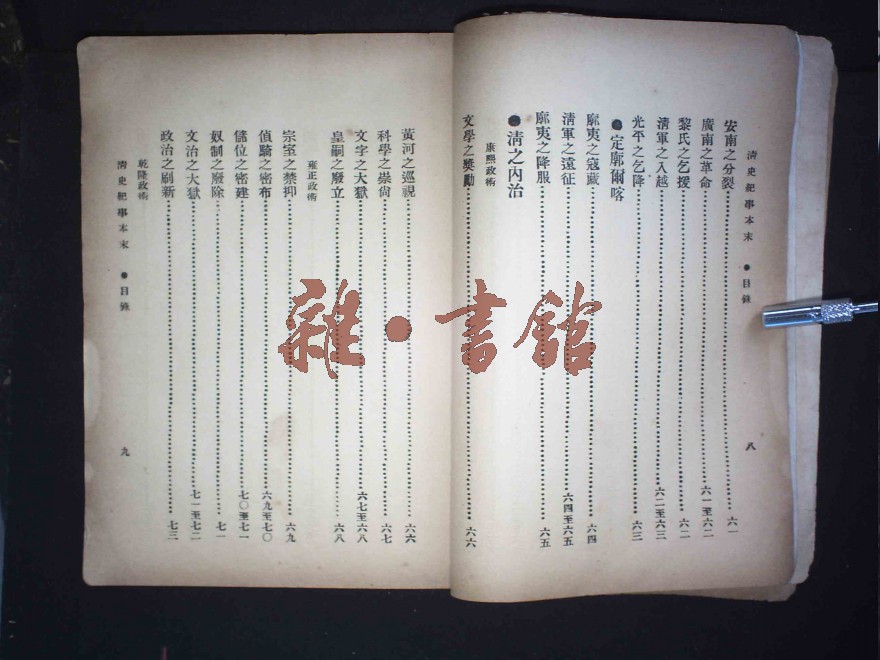 清史紀事本末 ●目錄 八
安南之分裂 六一
廣南之革命 六一至六二
黎氏之乞援 六二
清軍之入越 六二至六三
光平之乞降 六三
●定廓爾喀
廓夷之寇藏 六四
清軍之遠征 六四至六五
廓夷之降服 六五
●清之內治
康熙政術
文學之獎勵 六六
黃河之巡視 六六
科學之崇尙 六七
文字之大獄 六七至六八
皇嗣之廢立 六八
雍正政術
宗室之禁抑 六九
偵騎之密布 六九至七〇
儲位之密建 七〇至七一
奴制之廢除 七一
文治之大獄 七一至七二
政治之刷新 七三
乾隆政術
清史紀事本末 ●目錄 九
雜·書館